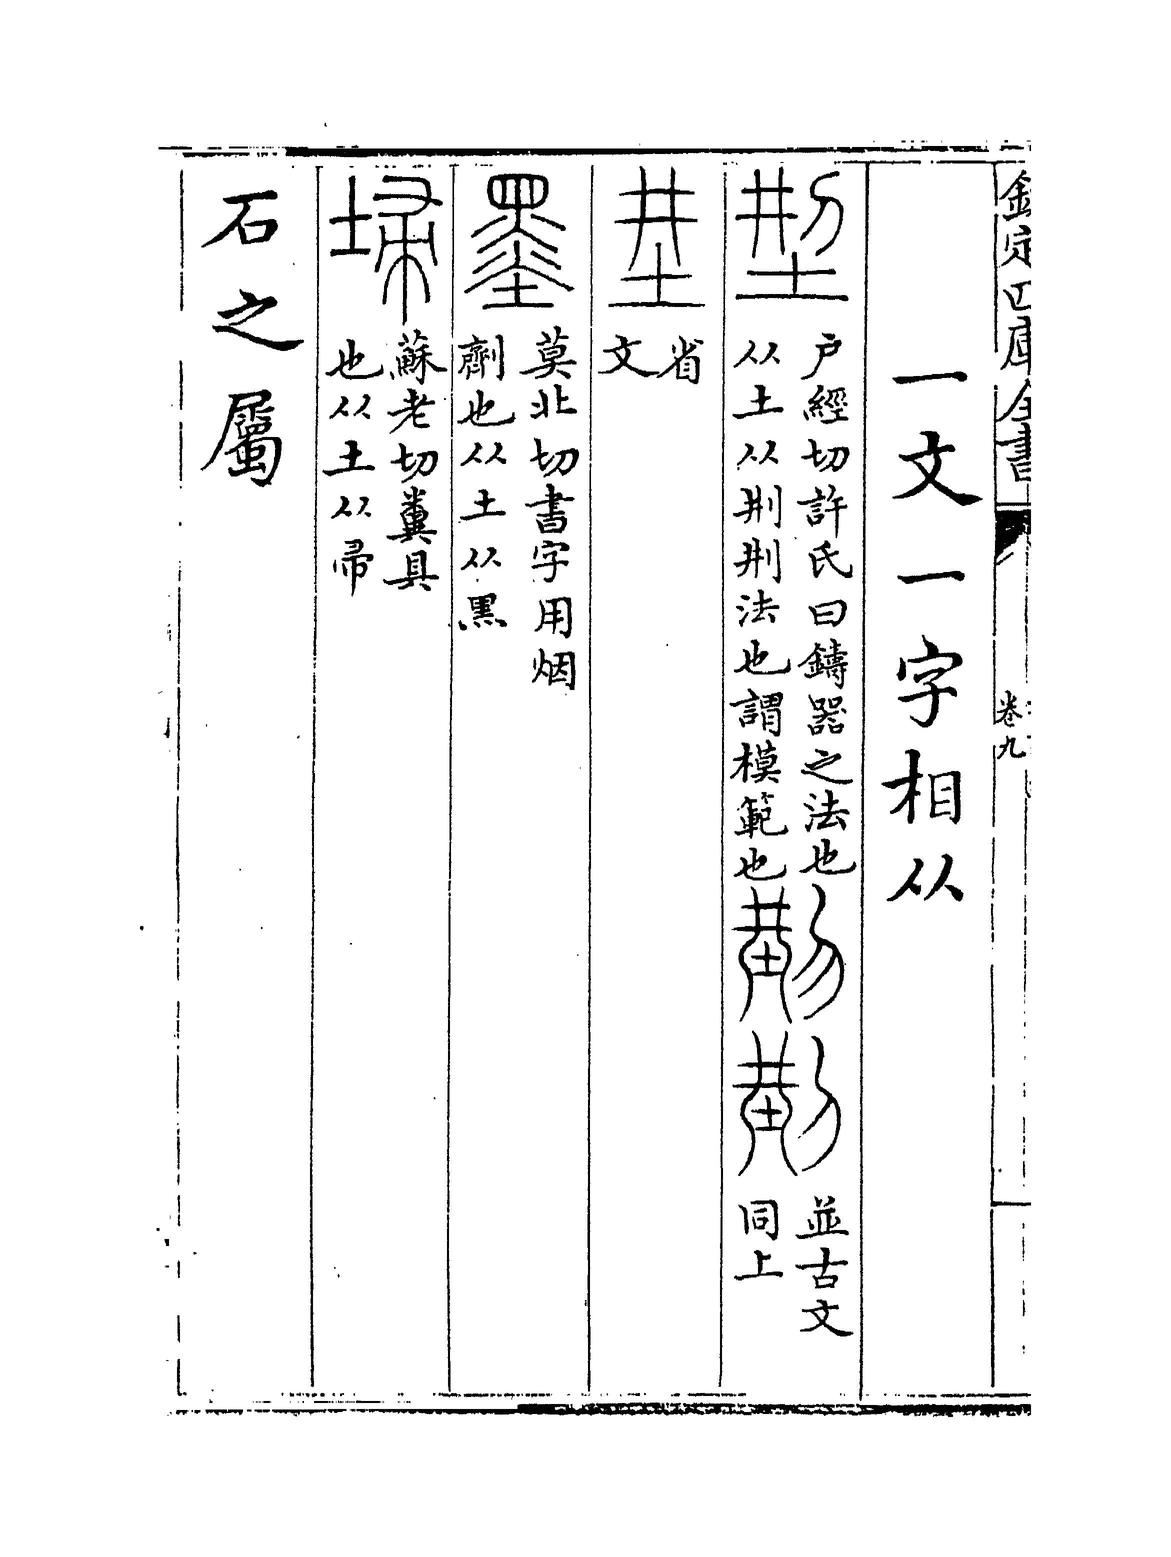 欽定四庫全書
卷九
一文一字相从
型
户經切許氏曰鑄器之法也
从土从刑刑法也謂模範也
並古文
同上
省
文
墨
莫北切書字用烟
劑也从土从黑
埽
蘇老切糞具
也从土从帚
石之屬